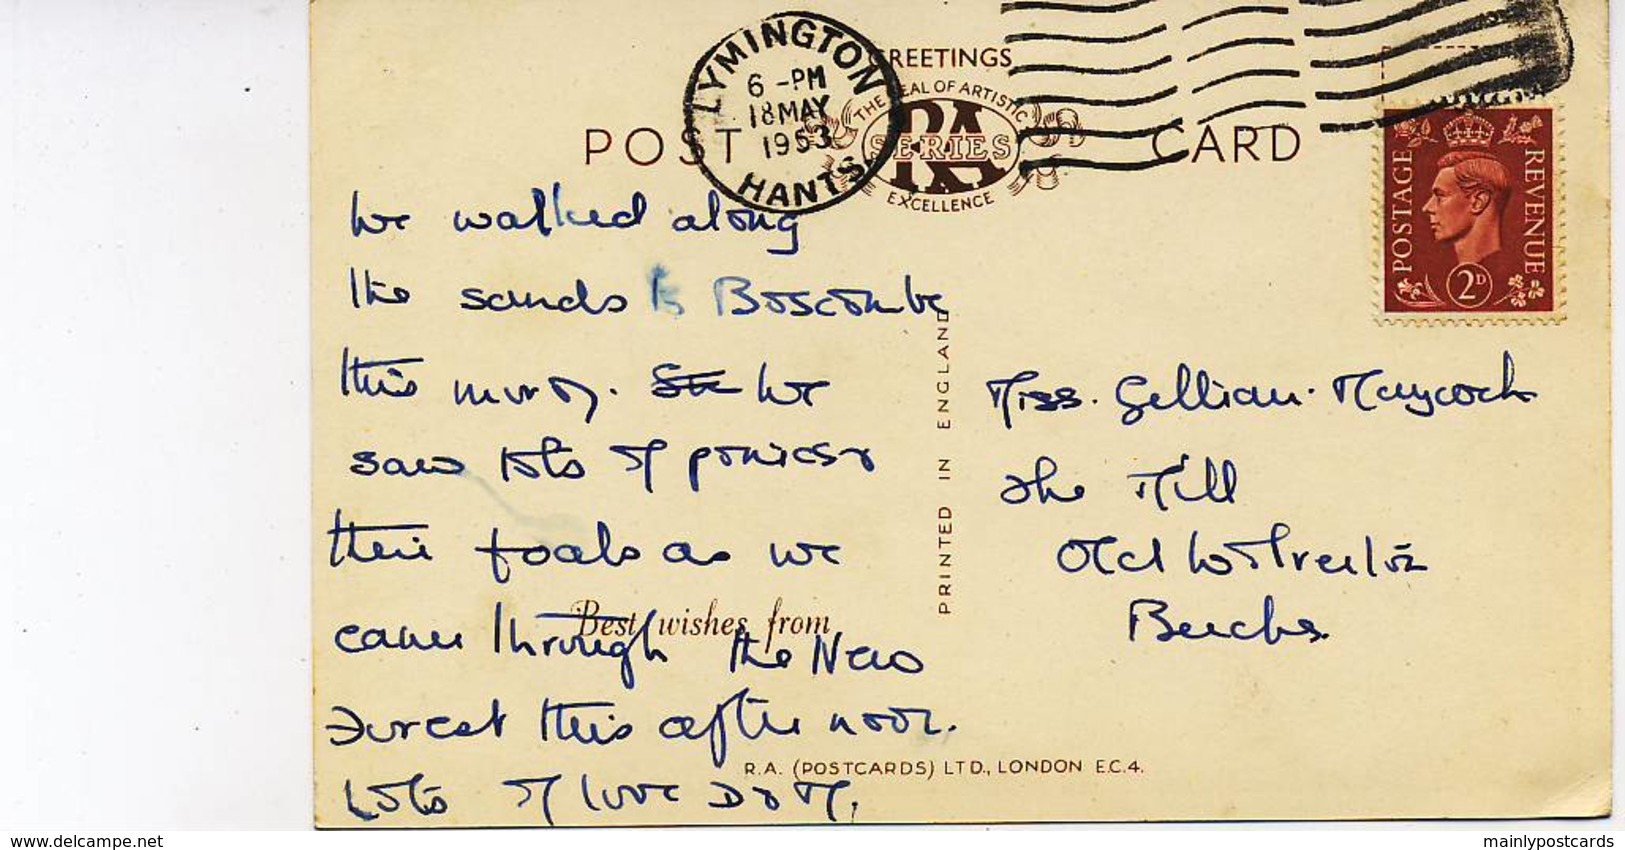 LYMINGTON
6 -PM
18 MAY
1953
HANTS
GREETINGS
THE SEAL OF ARTISTIC
RA
SERIES
EXCELLENCE
POST CARD
POSTAGE REVENUE
2D
We walked along
the sands to Boscombe
this morng. We
saw lots of ponies &
their foals as we
came through the New
Forest this afternoon.
Lots of love
Best wishes from
PRINTED IN ENGLAND
Miss. Gillian. Maycock
The Mill
Old Wolverton
Bucks.
R.A. (POSTCARDS) LTD., LONDON E.C.4.
delcampe.net
mainlypostcards